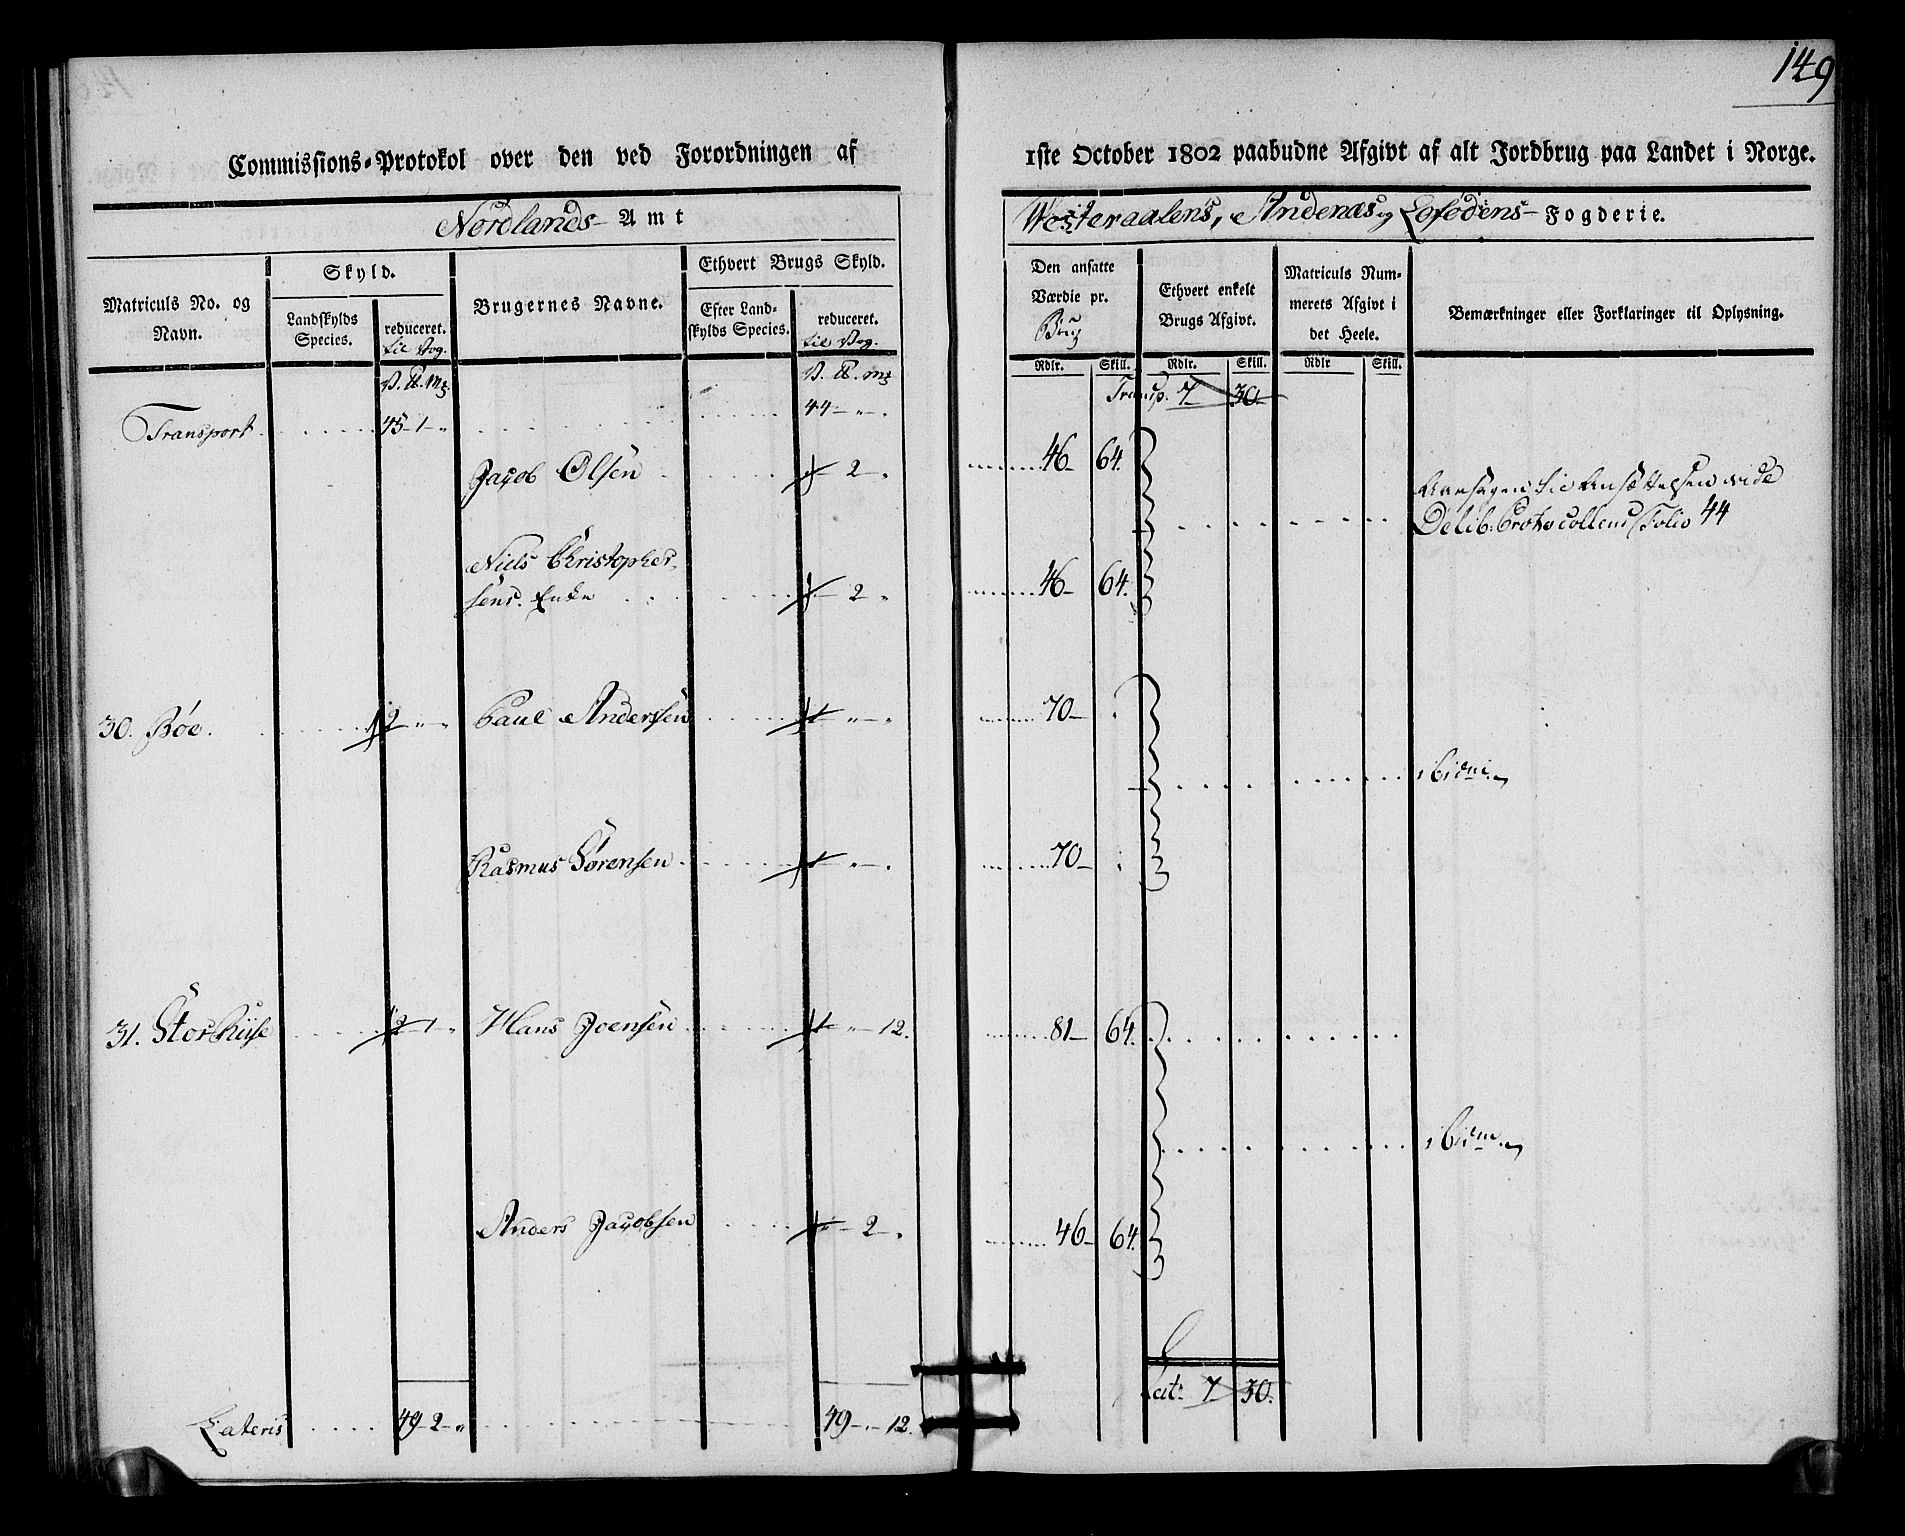 149
Commissions-Protokol over den ved Forordningen af 1ste October 1802 paabudne Afgivt af alt Jordbrug paa Landet i Norge.
Nordlands Amt
Westeraalens, Andenæs og Lofodens Fogderie.
Matriculs No. og Navn.
Skyld.
Landskylds Species.
reduceret. til Vog.
Brugernes Navne.
Ethvert Brugs Skyld.
Efter Landskylds Species.
reduceret. til Vog.
Den ansatte Værdie pr. Brug
Ethvert enkelt Brugs Afgivt.
Matriculs Nummerets Afgivt i det Heele.
Bemærkninger eller Forklaringer til Oplysning.
Rdlr. Skill. Rdlr. Skill. Rdlr Skill.
V. ℔. Mk V. ℔. Mk
Transp. 7 30
Transport 45-1-" 44-"-"
Jacob Olsen 2-" 46- 64.
Aarsagen til Ansættelsen vide
Delib: Protocollens Folio 44
Niels Christopher-
sens Enke 2-" 46- 64.
30. Bøe. 2-"-" Paul Andersen 1-"-" 70-
ibidem
Rasmus Sørensen 1-"-" 70-
31. Storhuse 2-1-" Hans Joensen 1-"-12. 81- 64.
ibidem
Anders Jacobsen "-2-" 46- 64.
Lateris 49-2-" 49-"-12. Lat: 7 30.